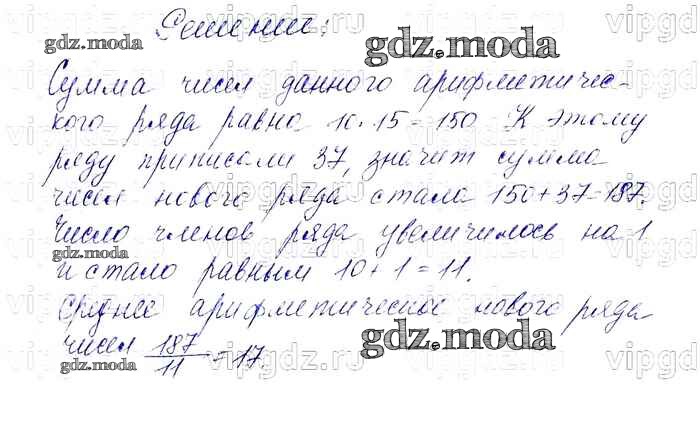 Решение:
Сумма чисел данного арифметичес-
кого ряда равна 10 · 15 = 150 К этому
ряду приписали 37, значит сумма
чисел нового ряда стала 150 + 37 = 187.
Число членов ряда увеличилось на 1
и стало равным 10 + 1 = 11.
Среднее арифметическое нового ряда
чисел 187/11 = 17.
gdz.moda
gdz.moda
gdz.moda
gdz.moda
gdz.moda
vipgdz.ru